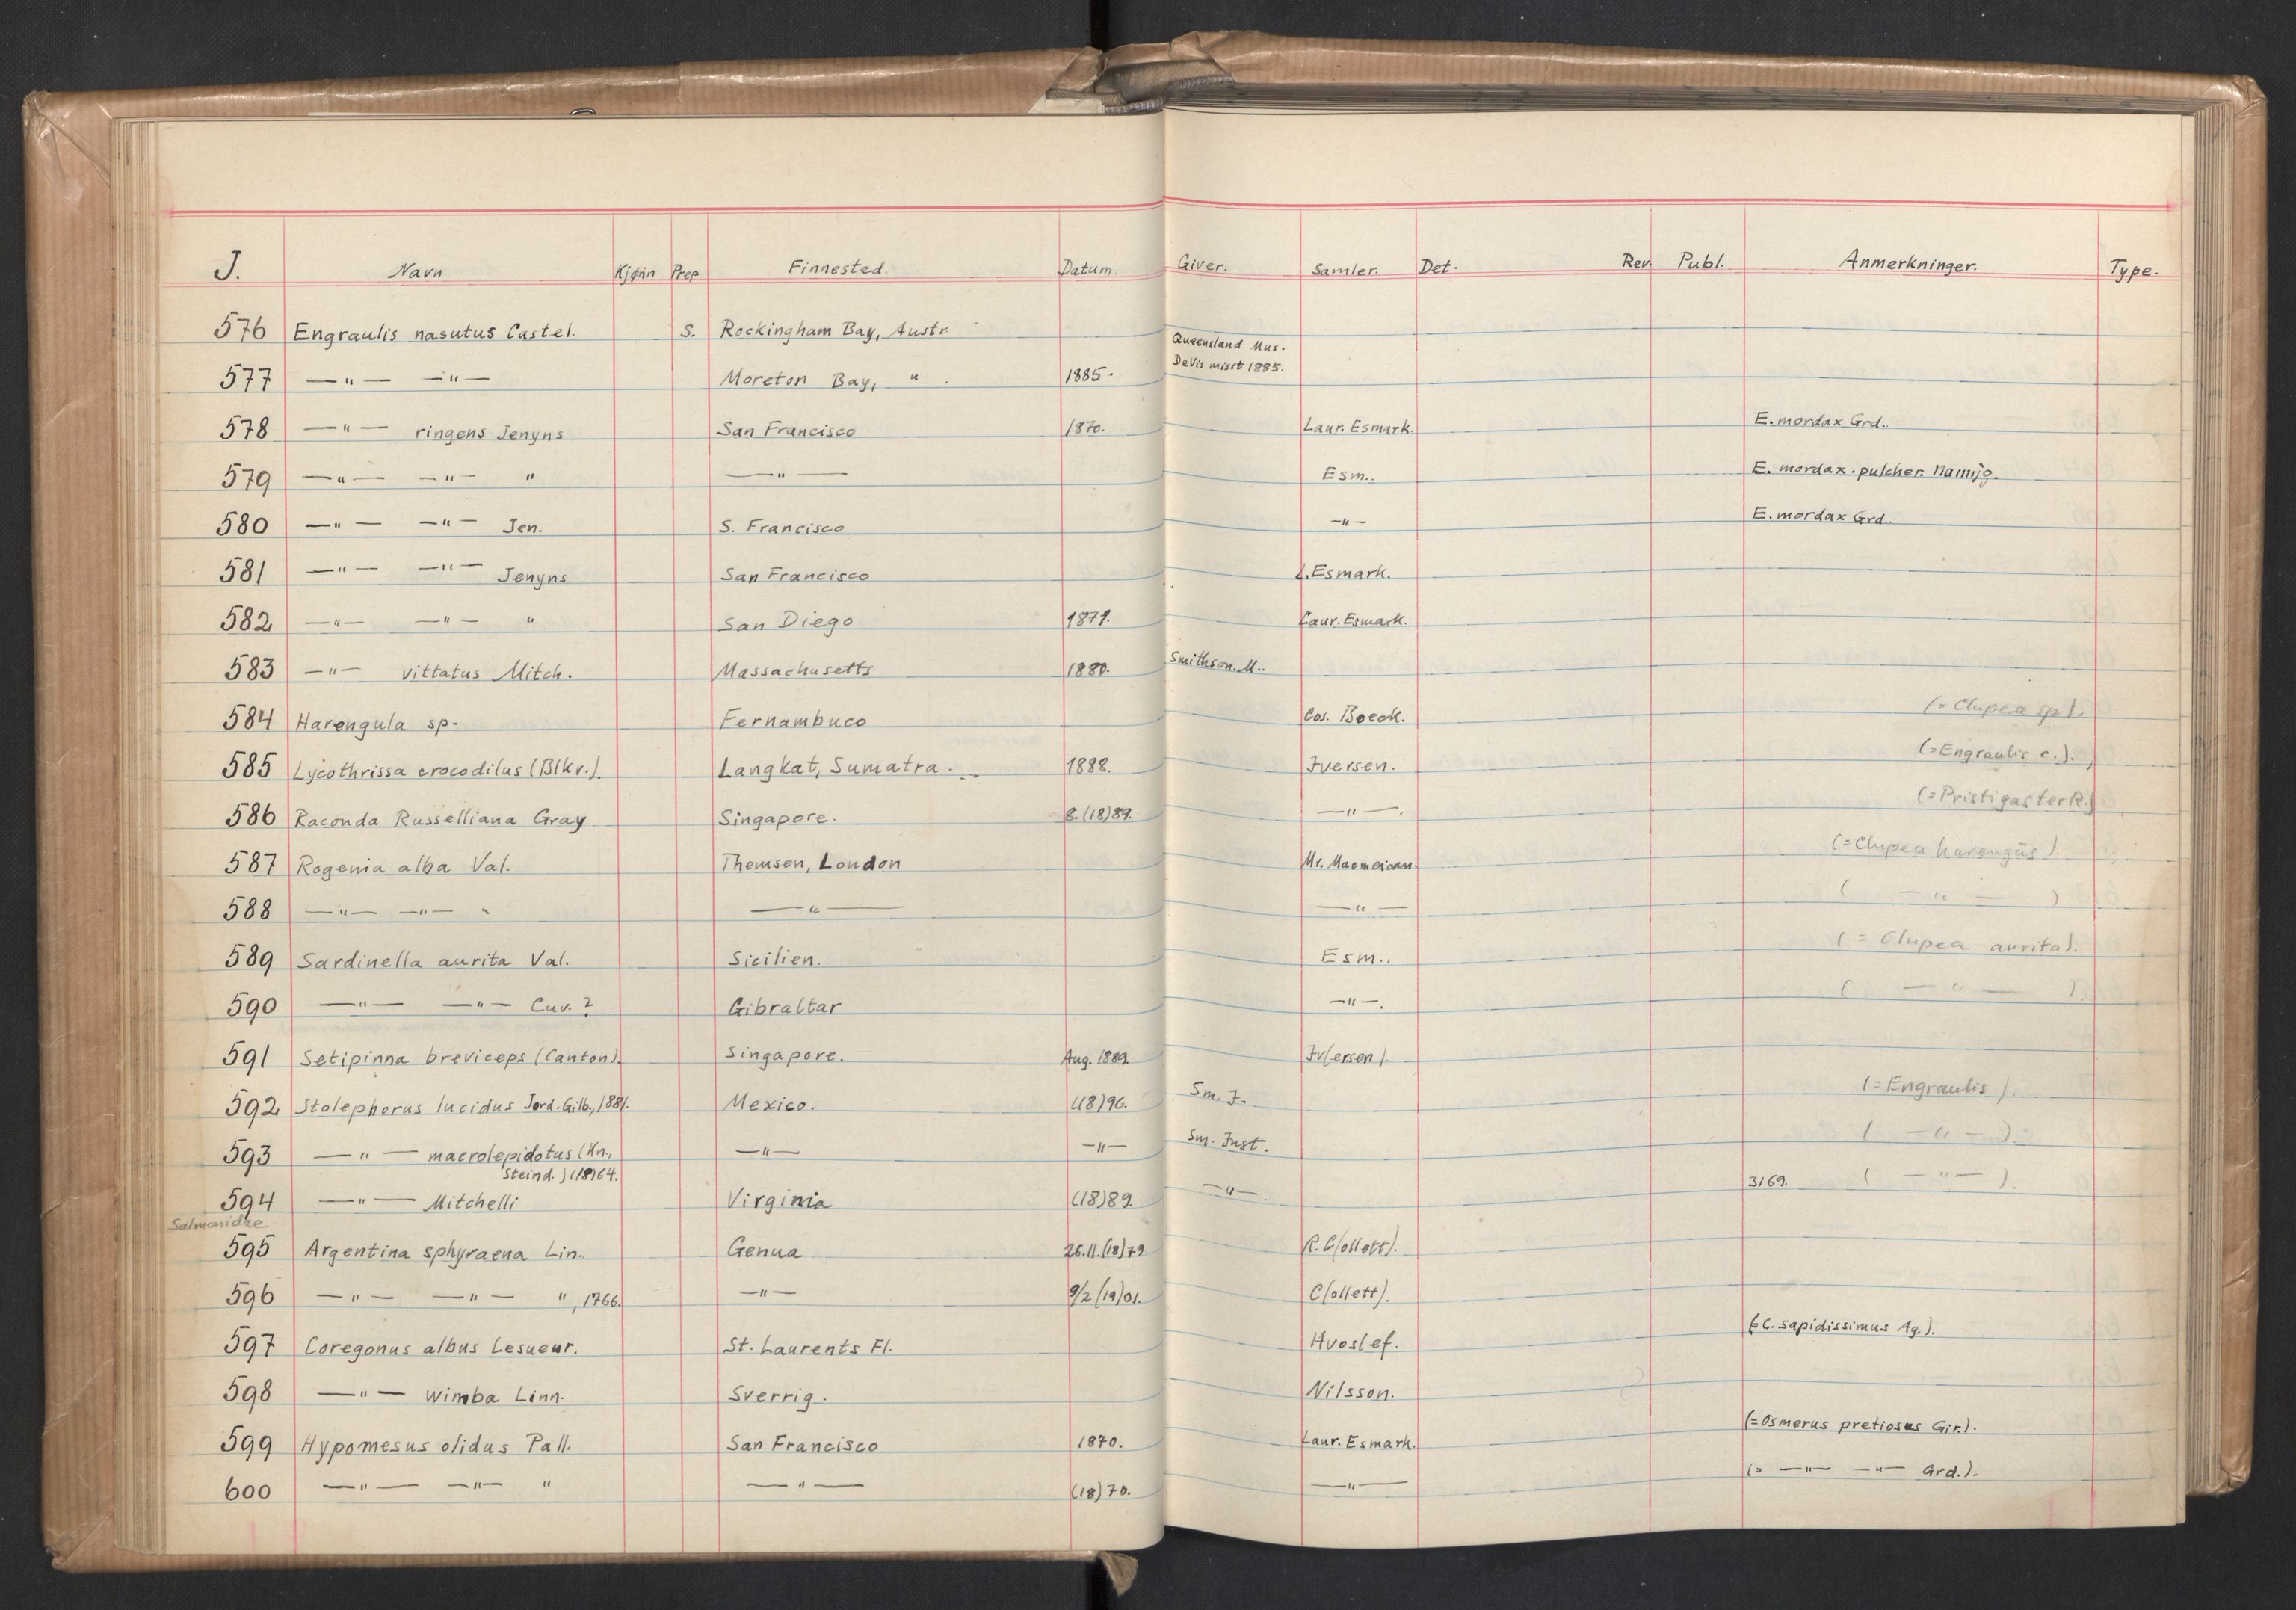 J. Navn Kjønn Prep Finnested. Datum. Giver. Samler. Det. Rev. Publ. Anmerkninger. Type.
576 Engraulis nasutus Castel. S. Rockingham Bay, Austr.
Queensland Mus.
577 —"— —"— Moreton Bay, " . 1885. Davis misit 1885.
578 —"— ringens Jenyns San Francisco 1870. Laur. Esmark. E. mordax Grd..
579 —"— —"— " —"— Esm.. E. mordax. pulcher.
580 —"— —"— Jen. S. Francisco —"— E. mordax Grd..
581 —"— —"— Jenyns San Francisco L. Esmark.
582 —"— —"— " San Diego 1871. Laur. Esmark.
583 —"— vittatus Mitch. Massachusetts 1880. Smithson. M..
584 Harengula sp. Fernambuco Cos. Boeck. (= Clupea sp).
585 Lycothrissa crocodilus (Blkr.). Langkat, Sumatra. 1888. Iversen. (= Engraulis c.).
586 Raconda Russelliana Gray Singapore. 8. (18)89. —"—. (= Pristigaster R.)
587 Rogenia alba Val. Themsen, London Mr. (= Clupea harengus).
588 —"— —"— " —"— —"— ( —"— )
589 Sardinella aurita Val. Sicilien. Esm.. (= Clupea aurita).
590 —"— —"— Cuv.? Gibraltar —"—. ( —"— ).
591 Setipinna breviceps (Canton). Singapore. Aug. 1889. Iv(ersen).
592 Stolephorus lucidus Jord. Gilb., 1881. Mexico. (18)96. Sm. I. (= Engraulis).
593 —"— macrolepidotus (Kn., —"— —"— Sm. Inst. ( —"— ).
Steind.) (18)64.
594 —"— Mitchelli Virginia (18)89. —"—. 3169. ( —"— ).
Salmonidae
595 Argentina sphyraena Lin. Genua 26.11.(18)79 R. C(ollett).
596 —"— —"— ", 1766. —"— 9/2 (19)01. C(ollett).
597 Coregonus albus Lesueur. St. Laurents Fl. Hvoslef. (= C. sapidissimus Ag.).
598 —"— wimba Linn. Sverrig. Nilsson.
599 Hypomesus olidus Pall. San Francisco 1870. Laur. Esmark. (= Osmerus pretiosus Gir.).
600 —"— —"— " —"— (18)70. —"— (= —"— —"— Grd.).